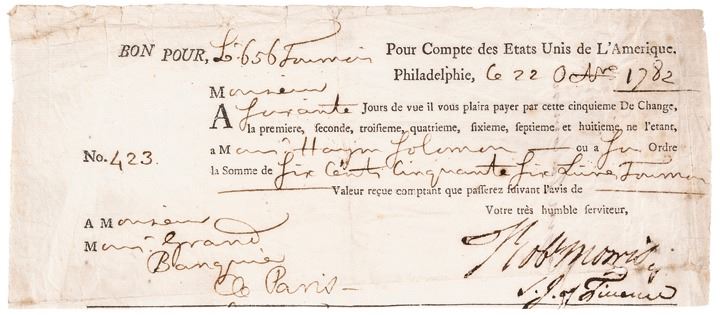 BON POUR, Lt. 656 Tournois Pour Compte des Etats Unis de L'Amerique.
Philadelphie, le 22 Octre 1782
Monsieur
A Soixante Jours de vue il vous plaira payer par cette cinquieme De Change,
la premiere, seconde, troisieme, quatrieme, sixieme, septieme et huitieme ne l'etant,
No. 423. a Monsr. Haym Solomon ou a son Ordre
la Somme de Six Cents Cinquante Six Livres Tournois
Valeur reçue comptant que passerez suivant l'avis de
Votre très humble serviteur,
A Monsieur
Monsr. Grand
Banquier
a Paris
Robt Morris
S. I. of Finance